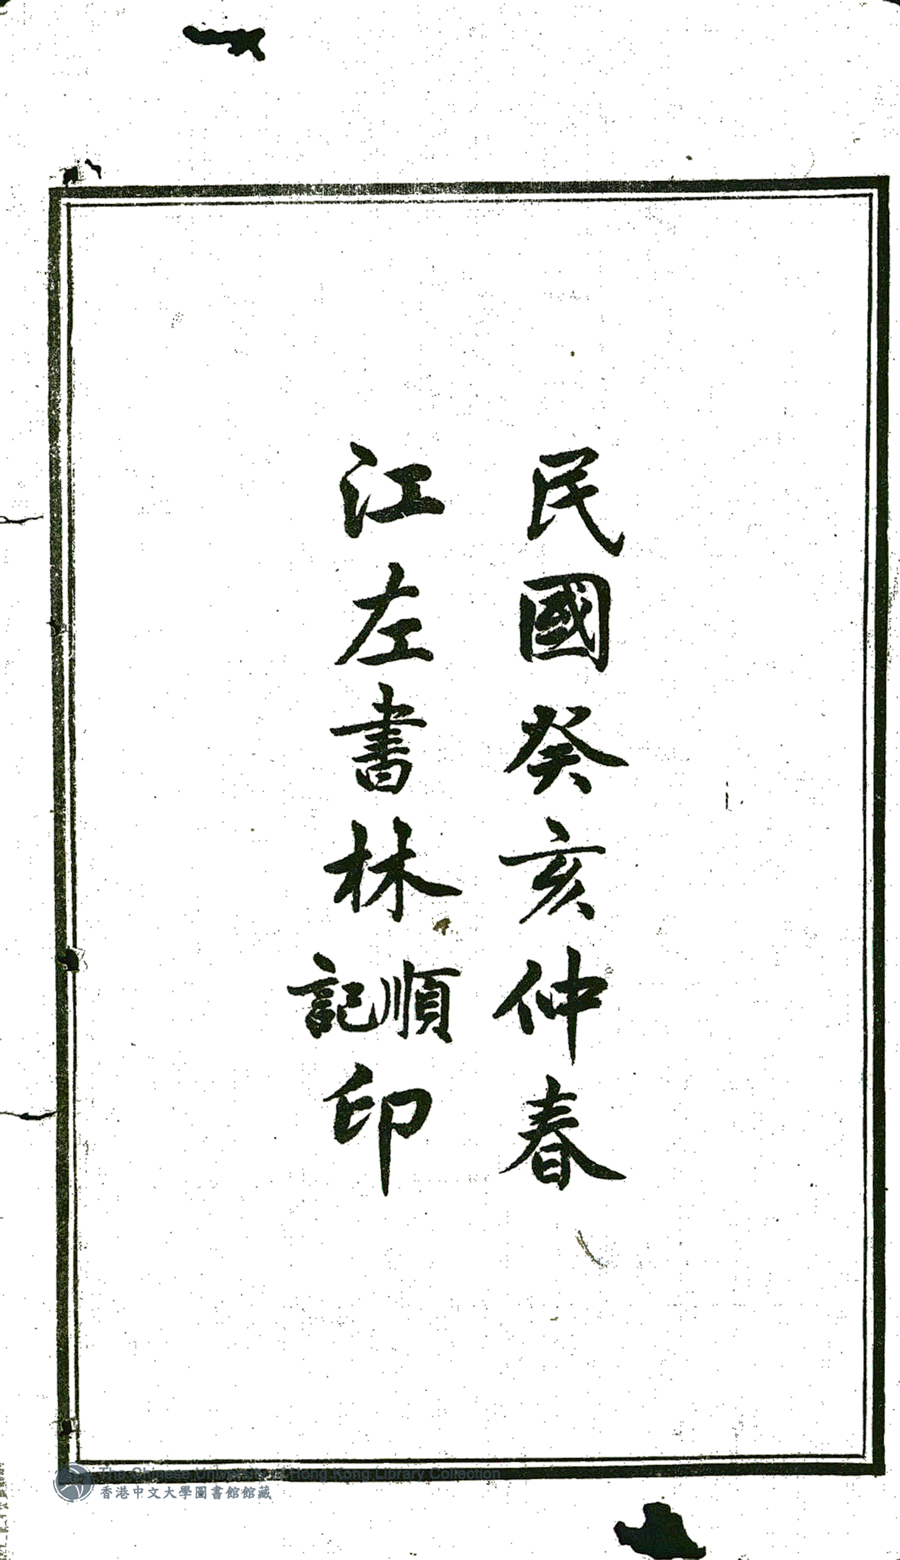 民國癸亥仲春
江左書林順記印
The Chinese University of Hong Kong Library Collection
香港中文大學圖書館館藏